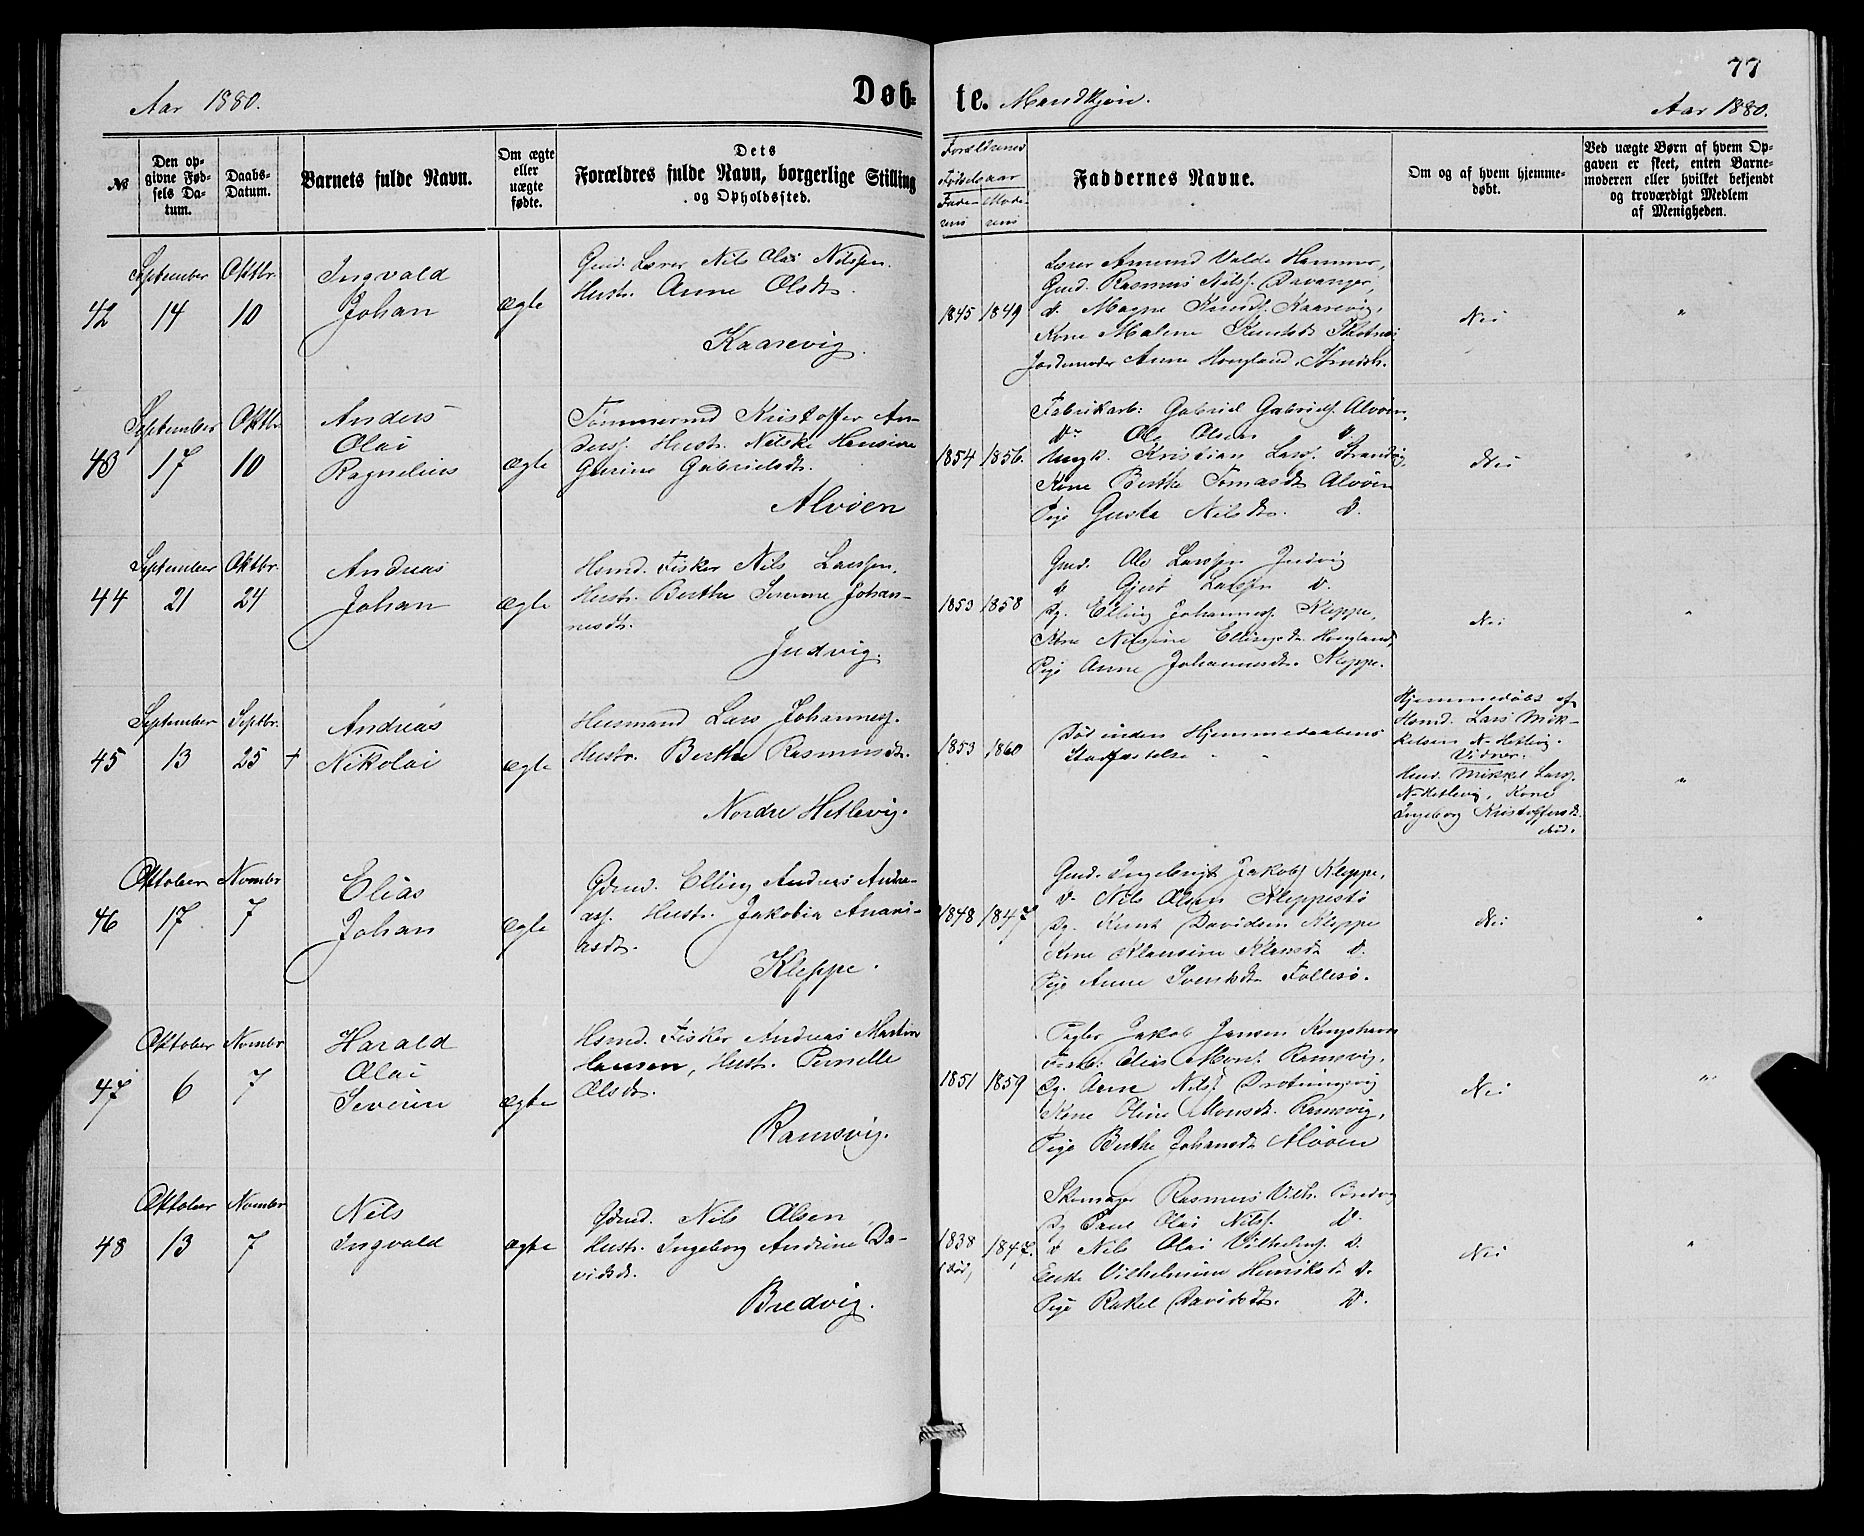 77
Aar 1880.
Døb-
te.
Mandkjøn.
Aar 1880.
No
Den op-
givne Fød-
sels Da-
tum.
Daabs-
Datum.
Barnets fulde Navn.
Om ægte
eller
uægte
fødte.
Dets
Forældres fulde Navn, borgerlige Stilling
og Opholdssted.
Forældrenes
Fødselsaar
Fade-
rens
Mode-
rens
Faddernes Navne.
Om og af hvem hjemme-
døbt.
Ved uægte Børn af hvem Op-
gaven er skeet, enten Barne-
moderen eller hvilket bekjendt
og troværdigt Medlem
af Menigheden.
42
September
14
Oktbr.
10
Ingvald
Johan
ægte
Gmd. Lærer Nils Olai Nilssen.
Hustr. Anne Olsdtr.
Kaarevig.
1845
1849
Lærer Amund Valde Hammer,
Gmd. Rasmus Nilsf. Davanger,
d. Magne Knudf. Kaarevig,
Kone Malene Knudsdtr
Jordemoder Anne Hougland
Nei
"
43
September
17
Oktbr
10
Anders
Olai
Ragnelius
ægte
Tømmermd Kristoffer An-
dersf. Hustr. Nilske Hansine
Gurine Gabrielsdtr.
Alvøen
1854
1856.
Fabrikarb: Gabriel Gabrielsf. Alvøen,
Do Ole Olsen d.
Ungk. Kristian Larsf.
Kone Berthe Tomasdtr Alvøen
Pige Gurta Nilsdtr. d.
Nei
"
44
September
21
Oktbr.
24
Andreas
Johan
ægte
Hsmd. Fisker Nils Larssen,
Hustr. Berthe Severine Johan-
nesdtr.
Judvig.
1853
1858
Gmd. Ole Larssen Judvig
d Gjert Larssen d.
Yg. Elling Johannesf. Kleppe,
Kone Nilsine Ellingsdtr Hougland,
Pige Anne Johannesdtr. Kleppe.
Nei
"
45
September
13
Septbr.
25
+
Andreas
Nikolai
ægte
Husmand Lars Johannesf.
Hustr. Berthe Rasmusdtr.
Nordre Hetlevig.
1853
1860
Død inden Hjemmedaabens
Stadfæstelse
Hjemmedøbt af
Hsmd. Lars Mik-
kelsen N. Hetlevig.
Vidner.
Hmd. Mikkel Larsf.
N. Hetlevig, Kone
Ingeborg Kristoffersdtr.
ibid.
"
46
Oktober
17.
Novembr
7
Elias
Johan
ægte
Gdmd. Elling Andreas Andre-
asf. Hustr. Jakobia Anani-
asdtr.
Kleppe.
1848
1847
Gmd. Ingebrigt Jakobf Kleppe,
d. Nils Olsen Kleppestø
Yg. Knut Davidsen Kleppe
Kone Klausine Klausdtr d.
Pige Anne Svensdtr Follesø.
Nei
"
47
Oktober
6
Novembr
7
Harald
Olai
Severin
ægte
Hsmd. Fisker Andreas Martin
Hansen, Hustr. Pernelle
Olsdtr.
Ramsvig.
1851
1859
Jakob Jansen
Elias Mons. Ramsvig,
Yg. Arne Nilsf Drotningvig
Kone Oline Monsdtr. Ramsvig,
Pige Berthe Johansdtr Alvøen
Nei
"
48
Oktober
13
Novembr
7
Nils
Ingvald
ægte
Gdmd. Nils Olsen,
Hustr. Ingeborg Andrine Da-
vidsdtr.
Bredvig.
1838
(død)
1847.
Skomager Rasmus Vilh. Bredvig
Yg Olai Nilsf. d.
d Nils Olai Vilhelmsf. d.
Enke Vilhelmine Henriksdtr d.
Pige Rakel Davidsdtr. d.
Nei
"